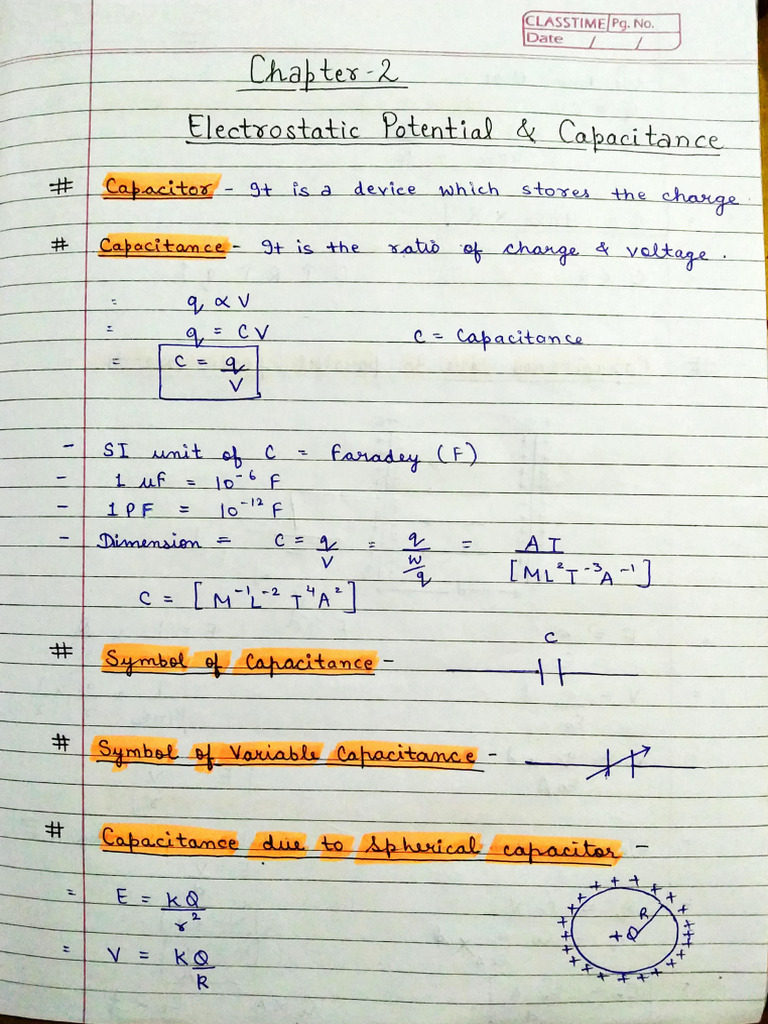 CLASSTIME Pg. No.
Date / /
Chapter-2
Electrostatic Potential & Capacitance
# Capacitor - It is a device which stores the charge
# Capacitance - It is the ratio of charge & voltage.
= q ∝ V
= q = CV C = Capacitance
= C = q/V
- SI unit of C = Faradey (F)
- 1 uF = 10⁻⁶ F
- 1 PF = 10⁻¹² F
- Dimension = C = q/V = q/(w/q) = AT/[ML²T⁻³A⁻¹]
C = [M⁻¹L⁻²T⁴A²]
C
# Symbol of Capacitance -
# Symbol of Variable Capacitance -
# Capacitance due to Spherical capacitor -
= E = KQ/r²
= V = KQ/R
R
+Q